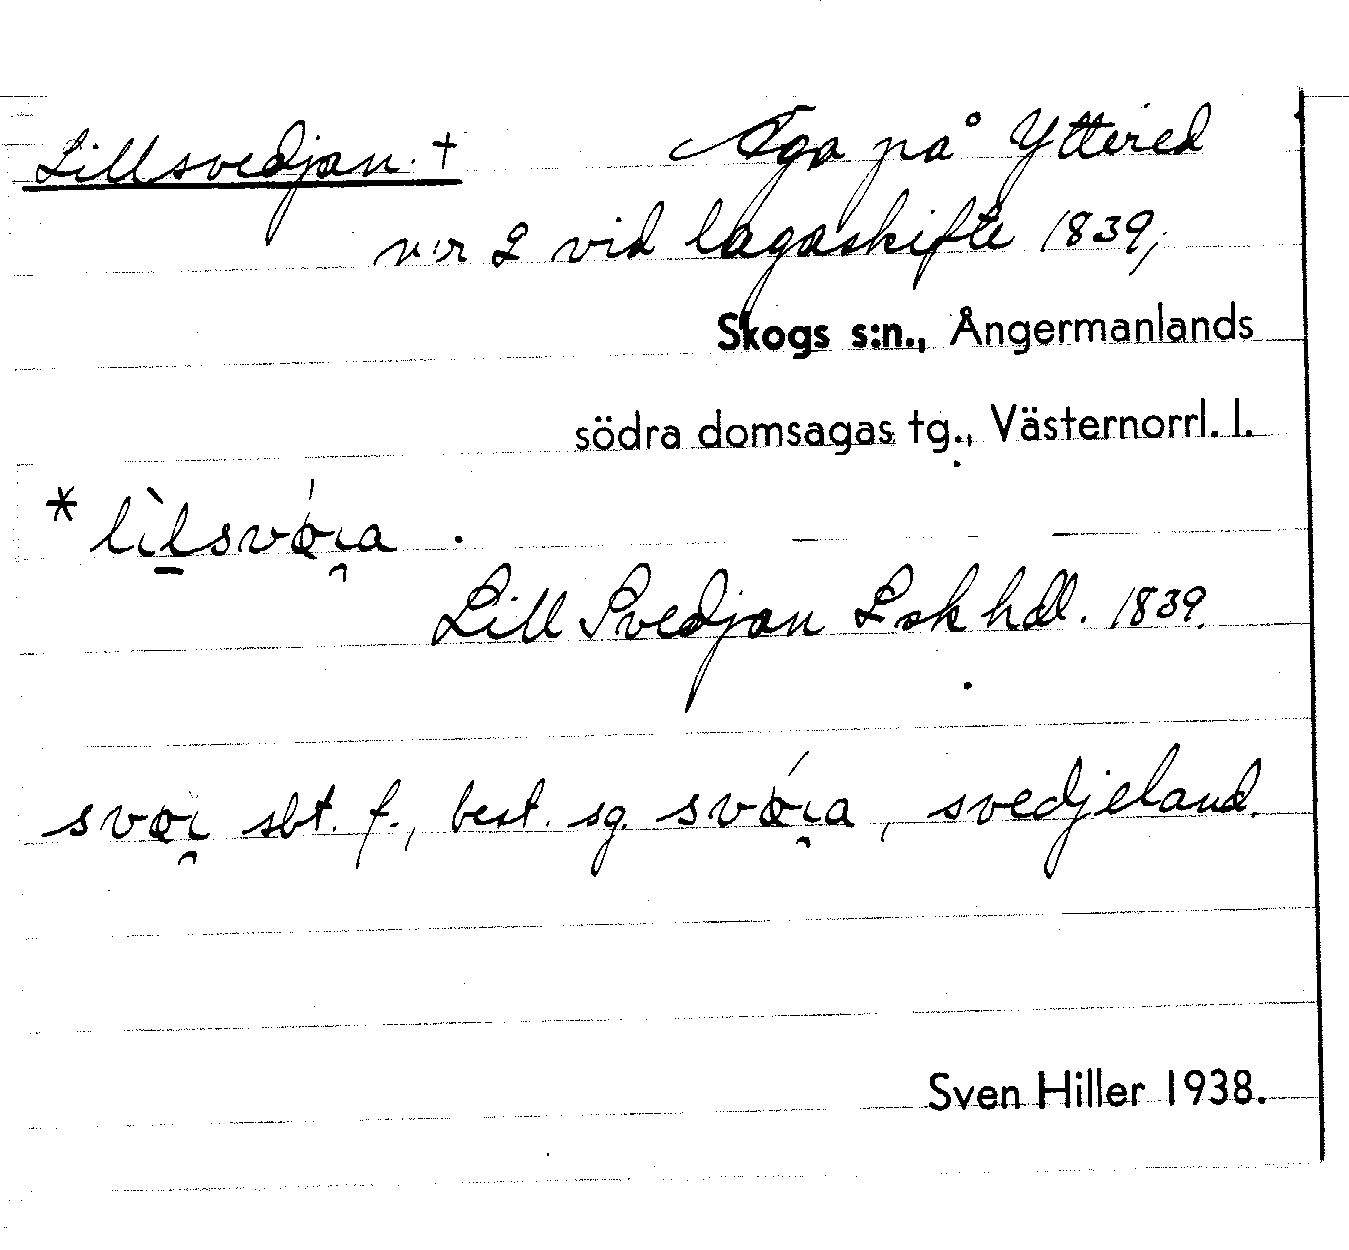 Lillsvedjan. † Äga på Yttered
n:r 2 vid lagaskifte 1839,
Skogs s:n., Ångermanlands
södra domsagas tg., Västernorrl. l.
* lìlsvǿɩ̯a .
Lill Svedjan Lsk hdl. 1839.
svøɩ̯ sbt. f., best. sg. svǿɩ̯a, svedjeland.
Sven Hiller 1938.